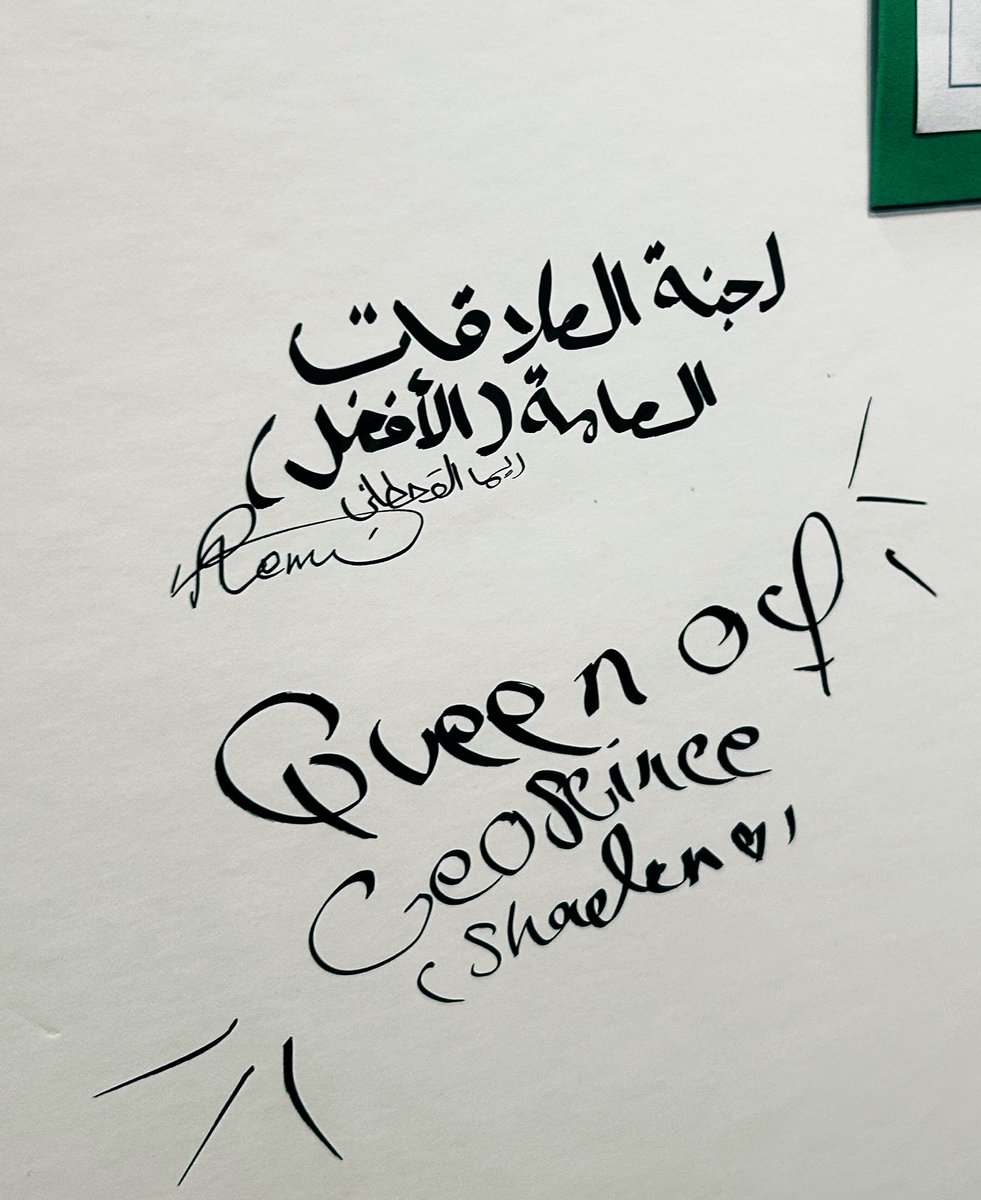 لجنة العلاقات
العامة (الأفضل)
ريما القحطاني
Remi
Queen of
Geoscince
(shaden)